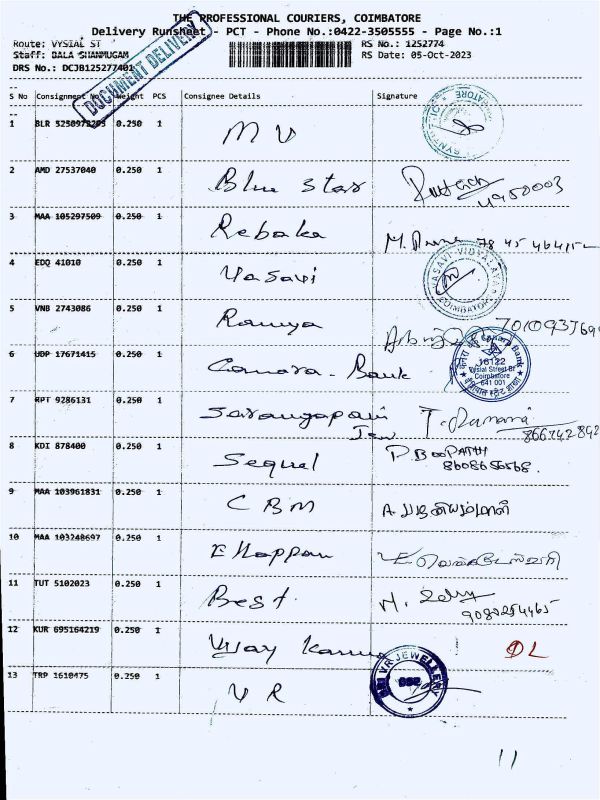 THE PROFESSIONAL COURIERS, COIMBATORE
Delivery Runsheet - PCT - Phone No.:0422-3505555 - Page No.:1
Route: VYSIAL ST RS No.: 1252774
Staff: BALA SHANMUGAM RS Date: 05-Oct-2023
DRS No.: DCJB125277401
DOCUMENT DELIVERY
S No Consignment No Weight PCS Consignee Details Signature
1 BLR 0.250 1 M V
2 AMD 27537040 0.250 1 Blue Star
4950003
3 MAA 105297509 0.250 1 Rebaka M.
4 EDQ 41010 0.250 1 Vasavi
VASAVI VIDYALAYAM
COIMBATORE
5 VNB 2743086 0.250 1 Ramya
6 UDP 17671415 0.250 1 Canara. Bank
Canara Bank
16122
Vysial Street Br
Coimbatore
641 001
7 RPT 9286131 0.250 1 Sarangapani T. Ramani
Jew 866742842
8 KDI 878400 0.250 1 Sequel P. BOOPATHI
8608656568.
9 MAA 103961831 0.250 1 CBM
10 MAA 103248697 0.250 1 Ellappan
11 TUT 5102023 0.250 1 Best.
9080254465
12 KUR 695164219 0.250 1 Vijay Kamu DL
13 TRP 1610475 0.250 1 V R
VR JEWELLERY
11